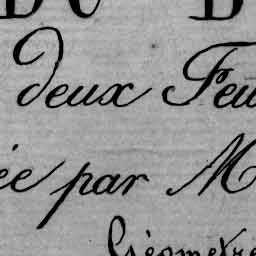 deux Feu
ée par M
Géometre